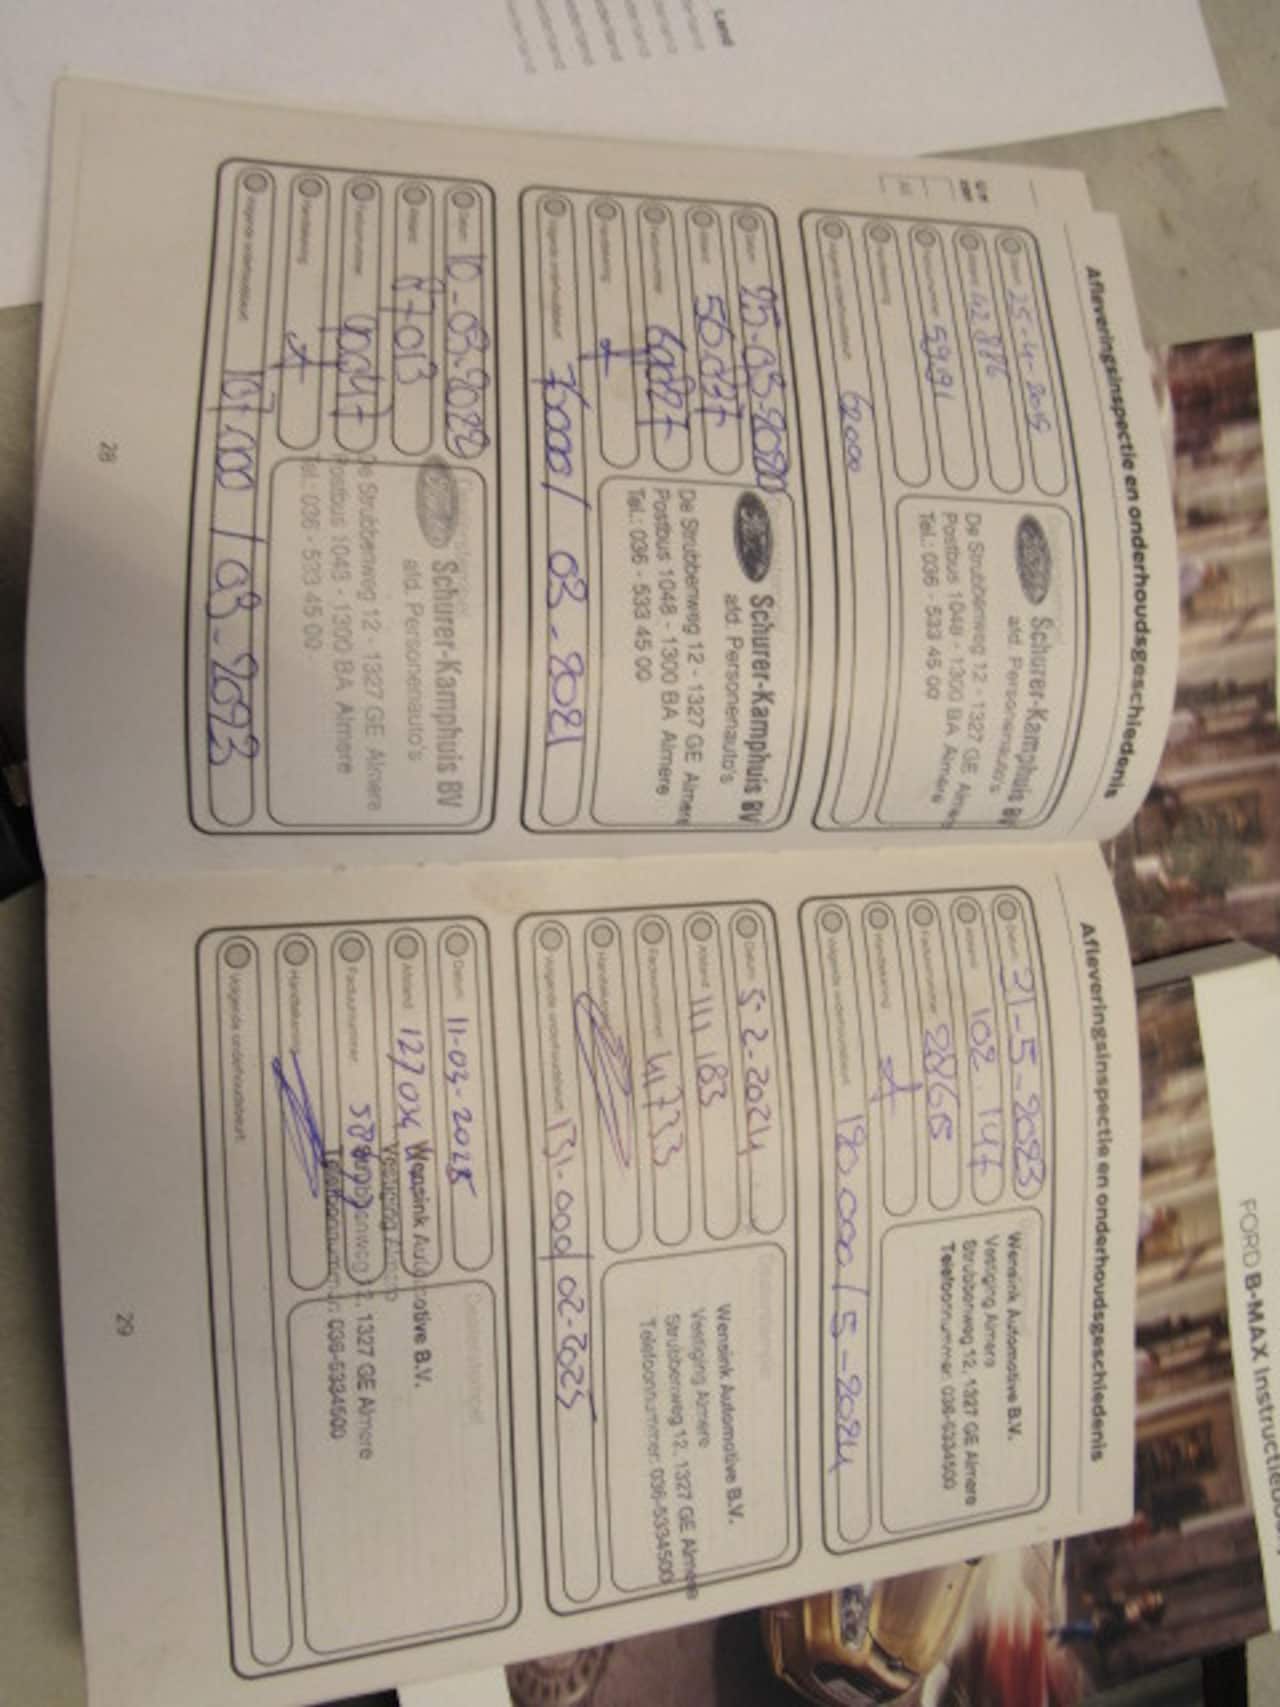 Land
Afleveringsinspectie en onderhoudsgeschiedenis
25-4-2019
42.876
Factuurnummer 59191
Volgende onderhoudsbeurt 62000
Schurer-Kamphuis BV
afd. Personenauto's
De Strubbenweg 12 - 1327 GE Almere
Postbus 1048 - 1300 BA Almere
Tel.: 036 - 533 45 00
Datum 25-03-2020
56027
Factuurnummer
Handtekening
Volgende onderhoudsbeurt 76000 / 03-2021
Schurer-Kamphuis BV
afd. Personenauto's
De Strubbenweg 12 - 1327 GE Almere
Postbus 1048 - 1300 BA Almere
Tel.: 036 - 533 45 00
Datum 10-03-2022
87013
Factuurnummer
Handtekening
Volgende onderhoudsbeurt 107.000 / 03-2023
Schurer-Kamphuis BV
afd. Personenauto's
De Strubbenweg 12 - 1327 GE Almere
Postbus 1048 - 1300 BA Almere
Tel.: 036 - 533 45 00
28
Afleveringsinspectie en onderhoudsgeschiedenis
Datum 31-5-2023
102.147
Factuurnummer 28665
Handtekening
Volgende onderhoudsbeurt 120.000 / 5-2024
Wensink Automotive B.V.
Vestiging Almere
Strubbenweg 12, 1327 GE Almere
Telefoonnummer: 036-5334500
Datum 5-2-2024
Afstand 111 183
Factuurnummer 41733
Handtekening
Volgende onderhoudsbeurt 131.000 / 02-2025
Wensink Automotive B.V.
Vestiging Almere
Strubbenweg 12, 1327 GE Almere
Telefoonnummer: 036-5334500
Datum 11-03-2025
Afstand 127034
Factuurnummer
Handtekening
Volgende onderhoudsbeurt
Dealerstempel
Wensink Automotive B.V.
Vestiging Almere
Strubbenweg 12, 1327 GE Almere
Telefoonnummer: 036-5334500
29
FORD B-MAX Instructieboekje